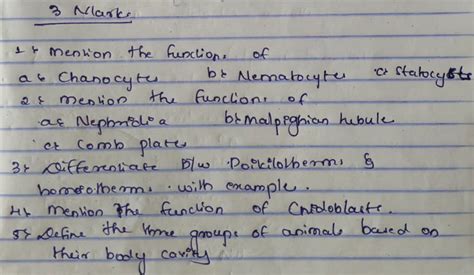 3 Marks
1. mention the functions of
a. Chanocytes b. Nematocytes c. Statocysts
2. mention the functions of
a. Nephridia b. malpighian tubule
c. Comb plates
3. Differentiate b/w Poikilotherms &
homeotherms with example.
4. mention the function of Cnidoblasts.
5. Define the three groups of animals based on
their body cavity